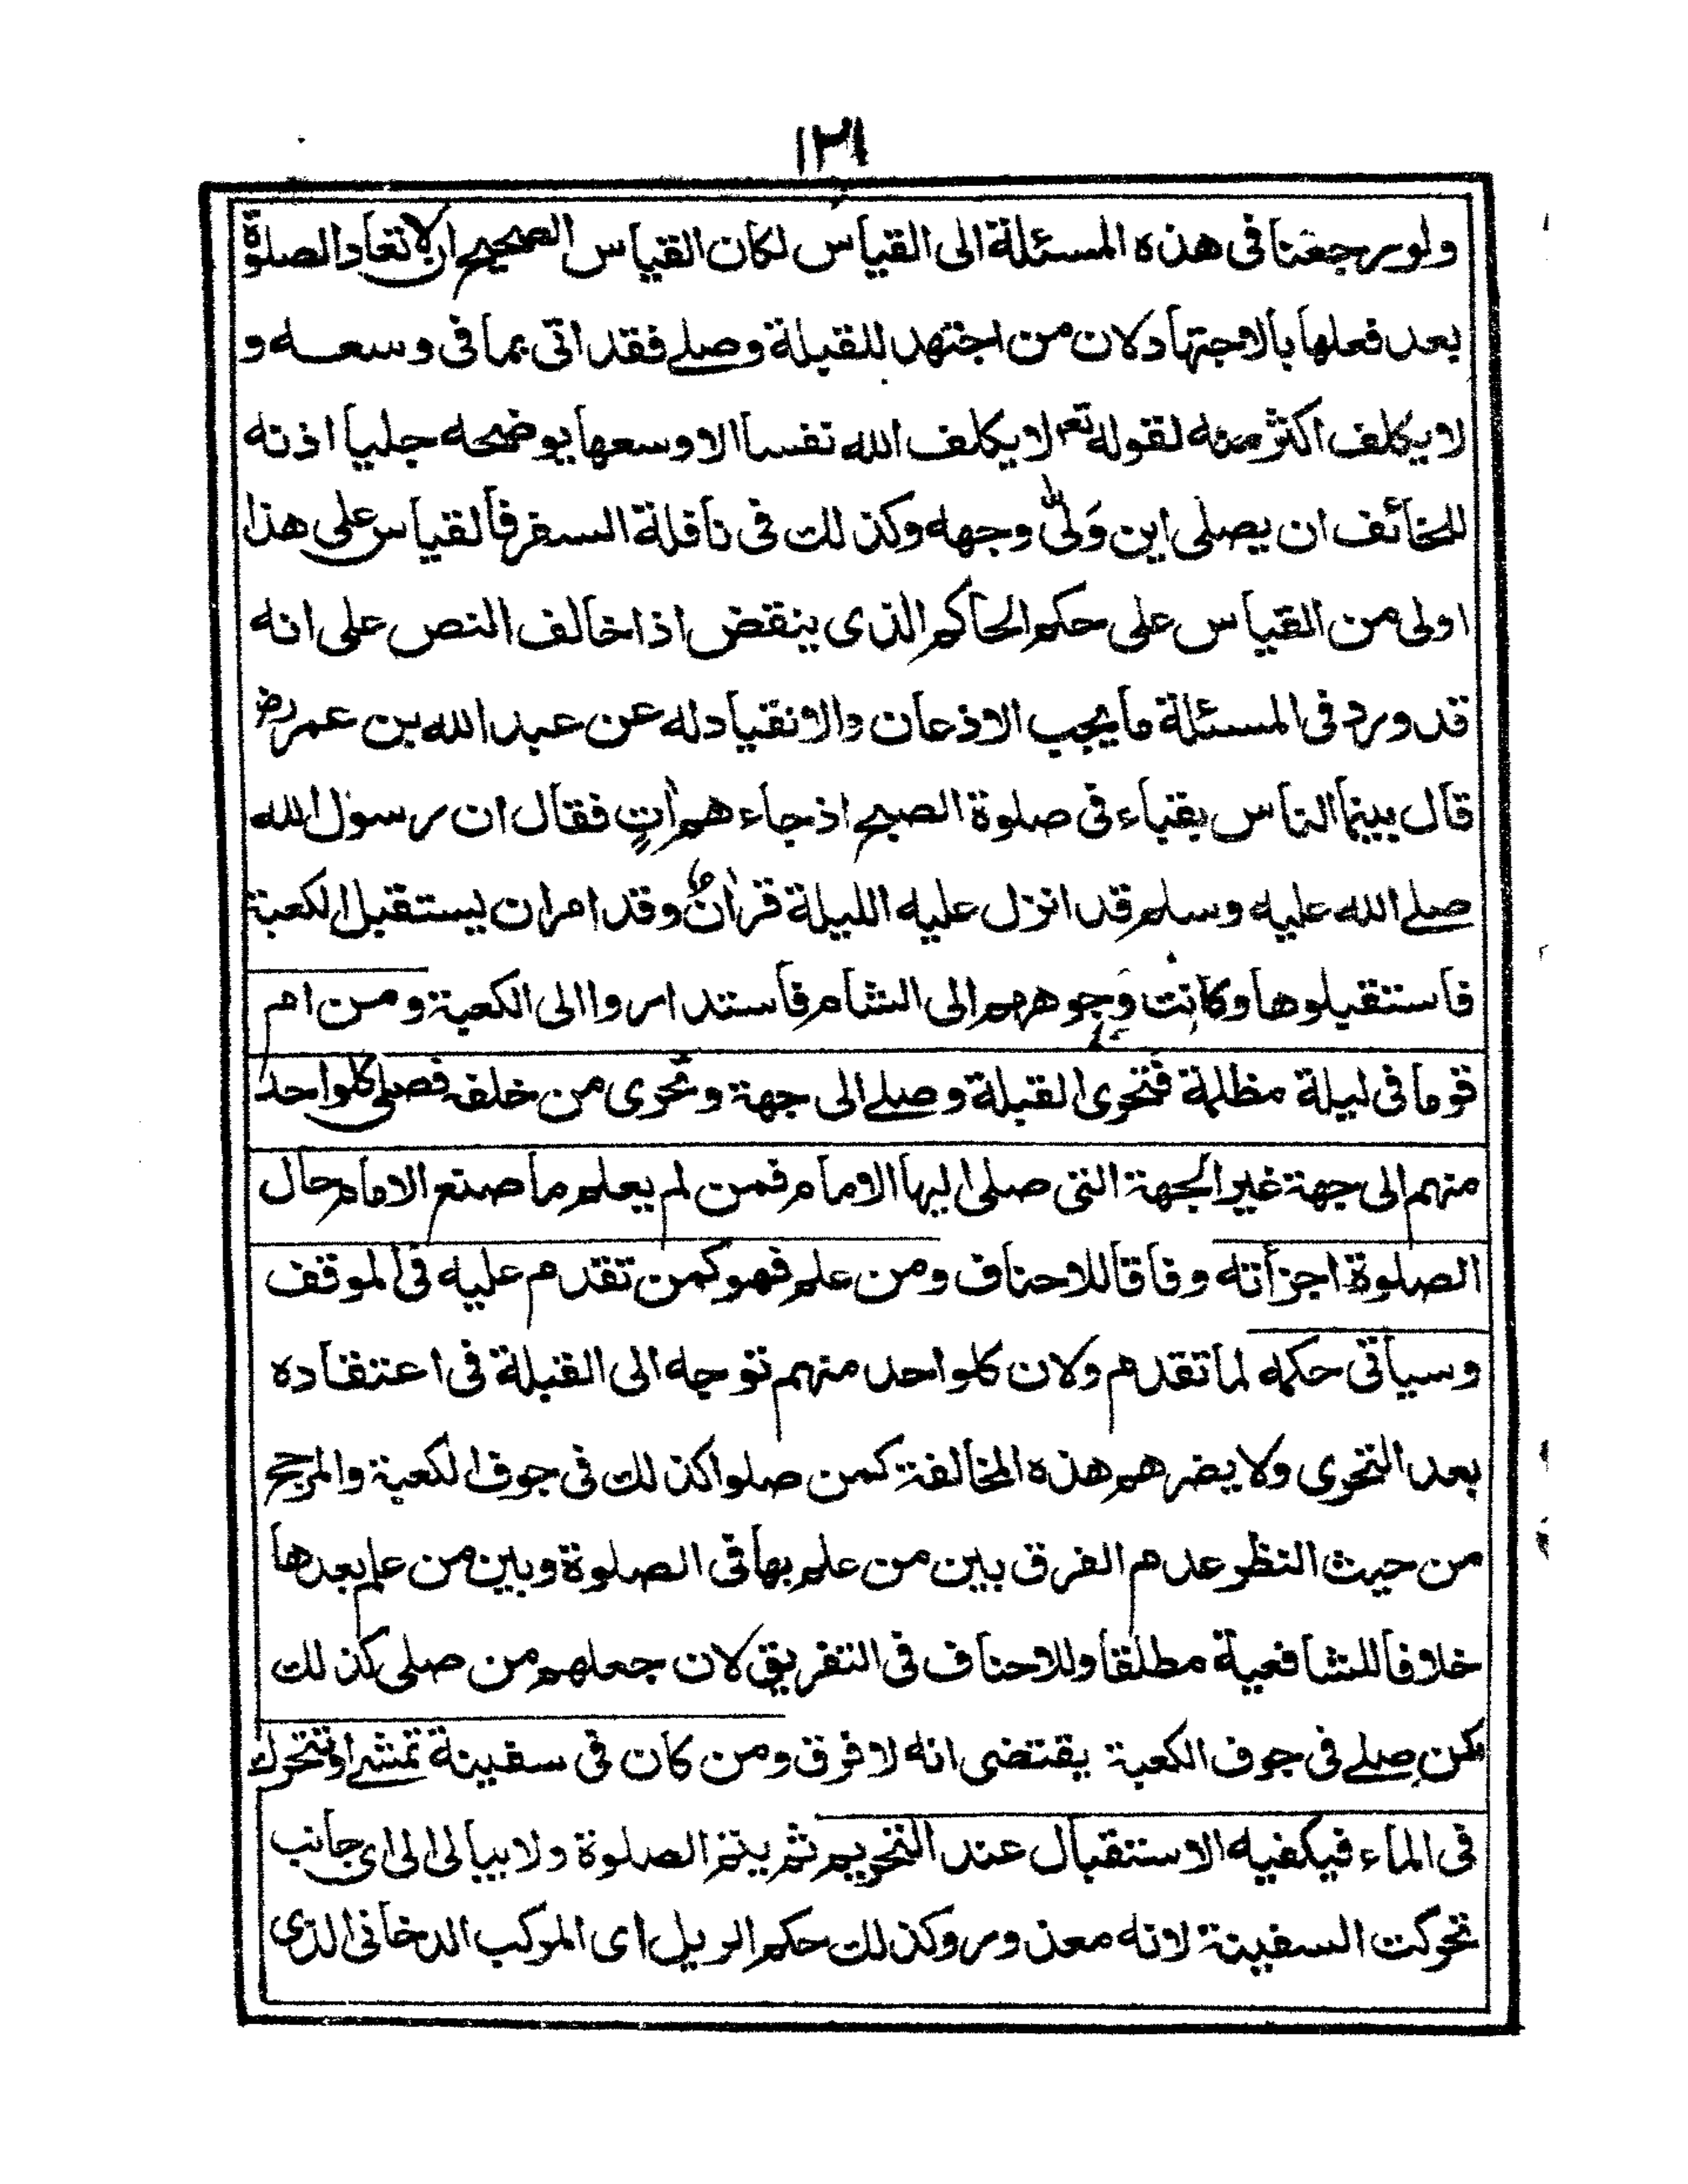 ١٢١
ولو رجعنا فى هذه المسئلة الى القياس لكان القياس الصحيح ان لا تعاد الصلوة
بعد فعلها بالاجتهاد لان من اجتهد للقبلة وصلے فقد اتى بما فى وسعه و
لا يكلف اكثر منه لقوله تعم لا يكلف الله نفسا الا وسعها يوضحه جليا اذنه
للخائف ان يصلى اين وَلىّٰ وجهه وكذلك فى نافلة السفر فالقياس على هذا
اولى من القياس على حكم الحاكم الذى ينقض اذا خالف النص على انه
قد ورد فى المسئلة ما يجب الاذعان والانقياد له عن عبد الله بن عمر رض
قال بينما الناس بقباء فى صلوة الصبح اذ جاء هم اٰتٍ فقال ان رسول الله
صلے الله عليه وسلم قد انزل عليه الليلة قراٰنٌ وقد امر ان يستقبل الكعبة
فاستقبلوها وكانت وجوههم الى الشام فاستداروا الى الكعبة ومن ام
قوما فى ليلة مظلمة فتحرى القبلة وصلے الى جهة وتحرى من خلفه فصلى كلواحد
منهم الى جهة غير الجهة التى صلى اليها الامام فمن لم يعلم ما صنع الامام حال
الصلوة اجزأته وفاقا للاحناف ومن علم فهو كمن تقدم عليه فى الموقف
وسياتى حكمه لما تقدم ولان كلواحد منهم توجه الى القبلة فى اعتقاده
بعد التحرى ولا يضرهم هذه المخالفة كمن صلوا كذلك فى جوف الكعبة والمرجح
من حيث النظر عدم الفرق بين من علم بها فى الصلوة وبين من علم بعدها
خلافا للشافعية مطلقا وللاحناف فى التفريق لان جعلهم من صلى كذلك
كمن صلے فى جوف الكعبة يقتضى انه لا فرق ومن كان فى سفينة تمشے او تتحرك
فى الماء فيكفيه الاستقبال عند التحريم ثم يتم الصلوة ولا يبالى الى اى جانب
تحركت السفينة لانه معذور وكذلك حكم الريل اى المركب الدخانى الذى